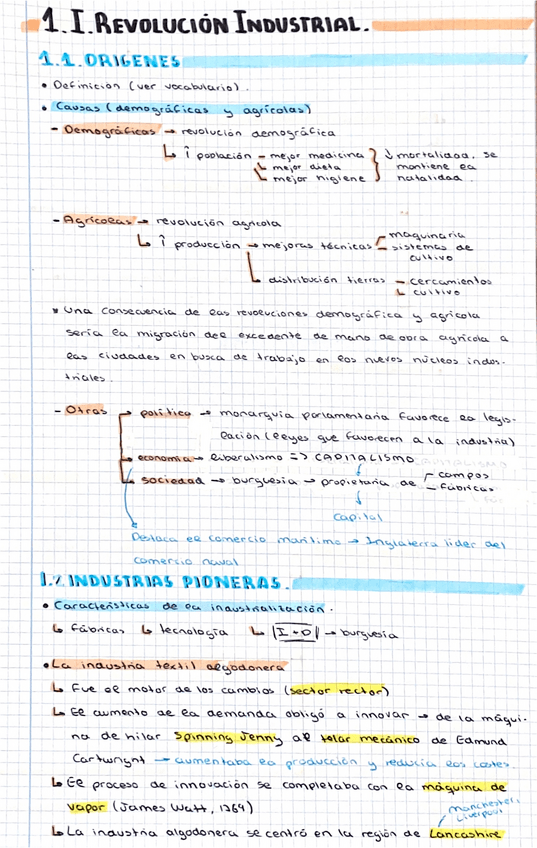 1. I. REVOLUCIÓN INDUSTRIAL.
1.1. ORIGENES
• Definición (ver vocabulario).
• Causas (demográficas y agrícolas)
- Demográficas → revolución demográfica
↳ ↑ población - mejor medicina } ↓ mortalidad, se
↳ mejor dieta mantiene la
↳ mejor higiene natalidad.
- Agrícolas → revolución agrícola
maquinaria
↳ ↑ producción → mejoras técnicas - sistemas de
cultivo
↳ distribución tierras - cercamientos
↳ cultivo
* Una consecuencia de las revoluciones demográfica y agrícola
sería la migración del excedente de mano de obra agrícola a
las ciudades en busca de trabajo en los nuevos núcleos indus-
triales.
- Otras → política → monarquía parlamentaria favorece la legis-
lación (leyes que favorecen a la industria)
→ economía → liberalismo => CAPITALISMO
↳ sociedad → burguesía → propietaria de - campos
- fábricas
Capital
Destaca el comercio marítimo → Inglaterra líder del
comercio naval
1.2. INDUSTRIAS PIONERAS.
• Características de la industrialización.
↳ fábricas ↳ tecnología ↳ |I+D| → burguesía
• La industria textil algodonera
↳ Fue el motor de los cambios (sector rector)
↳ El aumento de la demanda obligó a innovar → de la máqui-
na de hilar Spinning Jenny al telar mecánico de Edmund
Cartwright → aumentaba la producción y reducía los costes.
↳ El proceso de innovación se completaba con la máquina de
vapor (James Watt, 1769)
Manchester,
Liverpool
↳ La industria algodonera se centró en la región de Lancashire